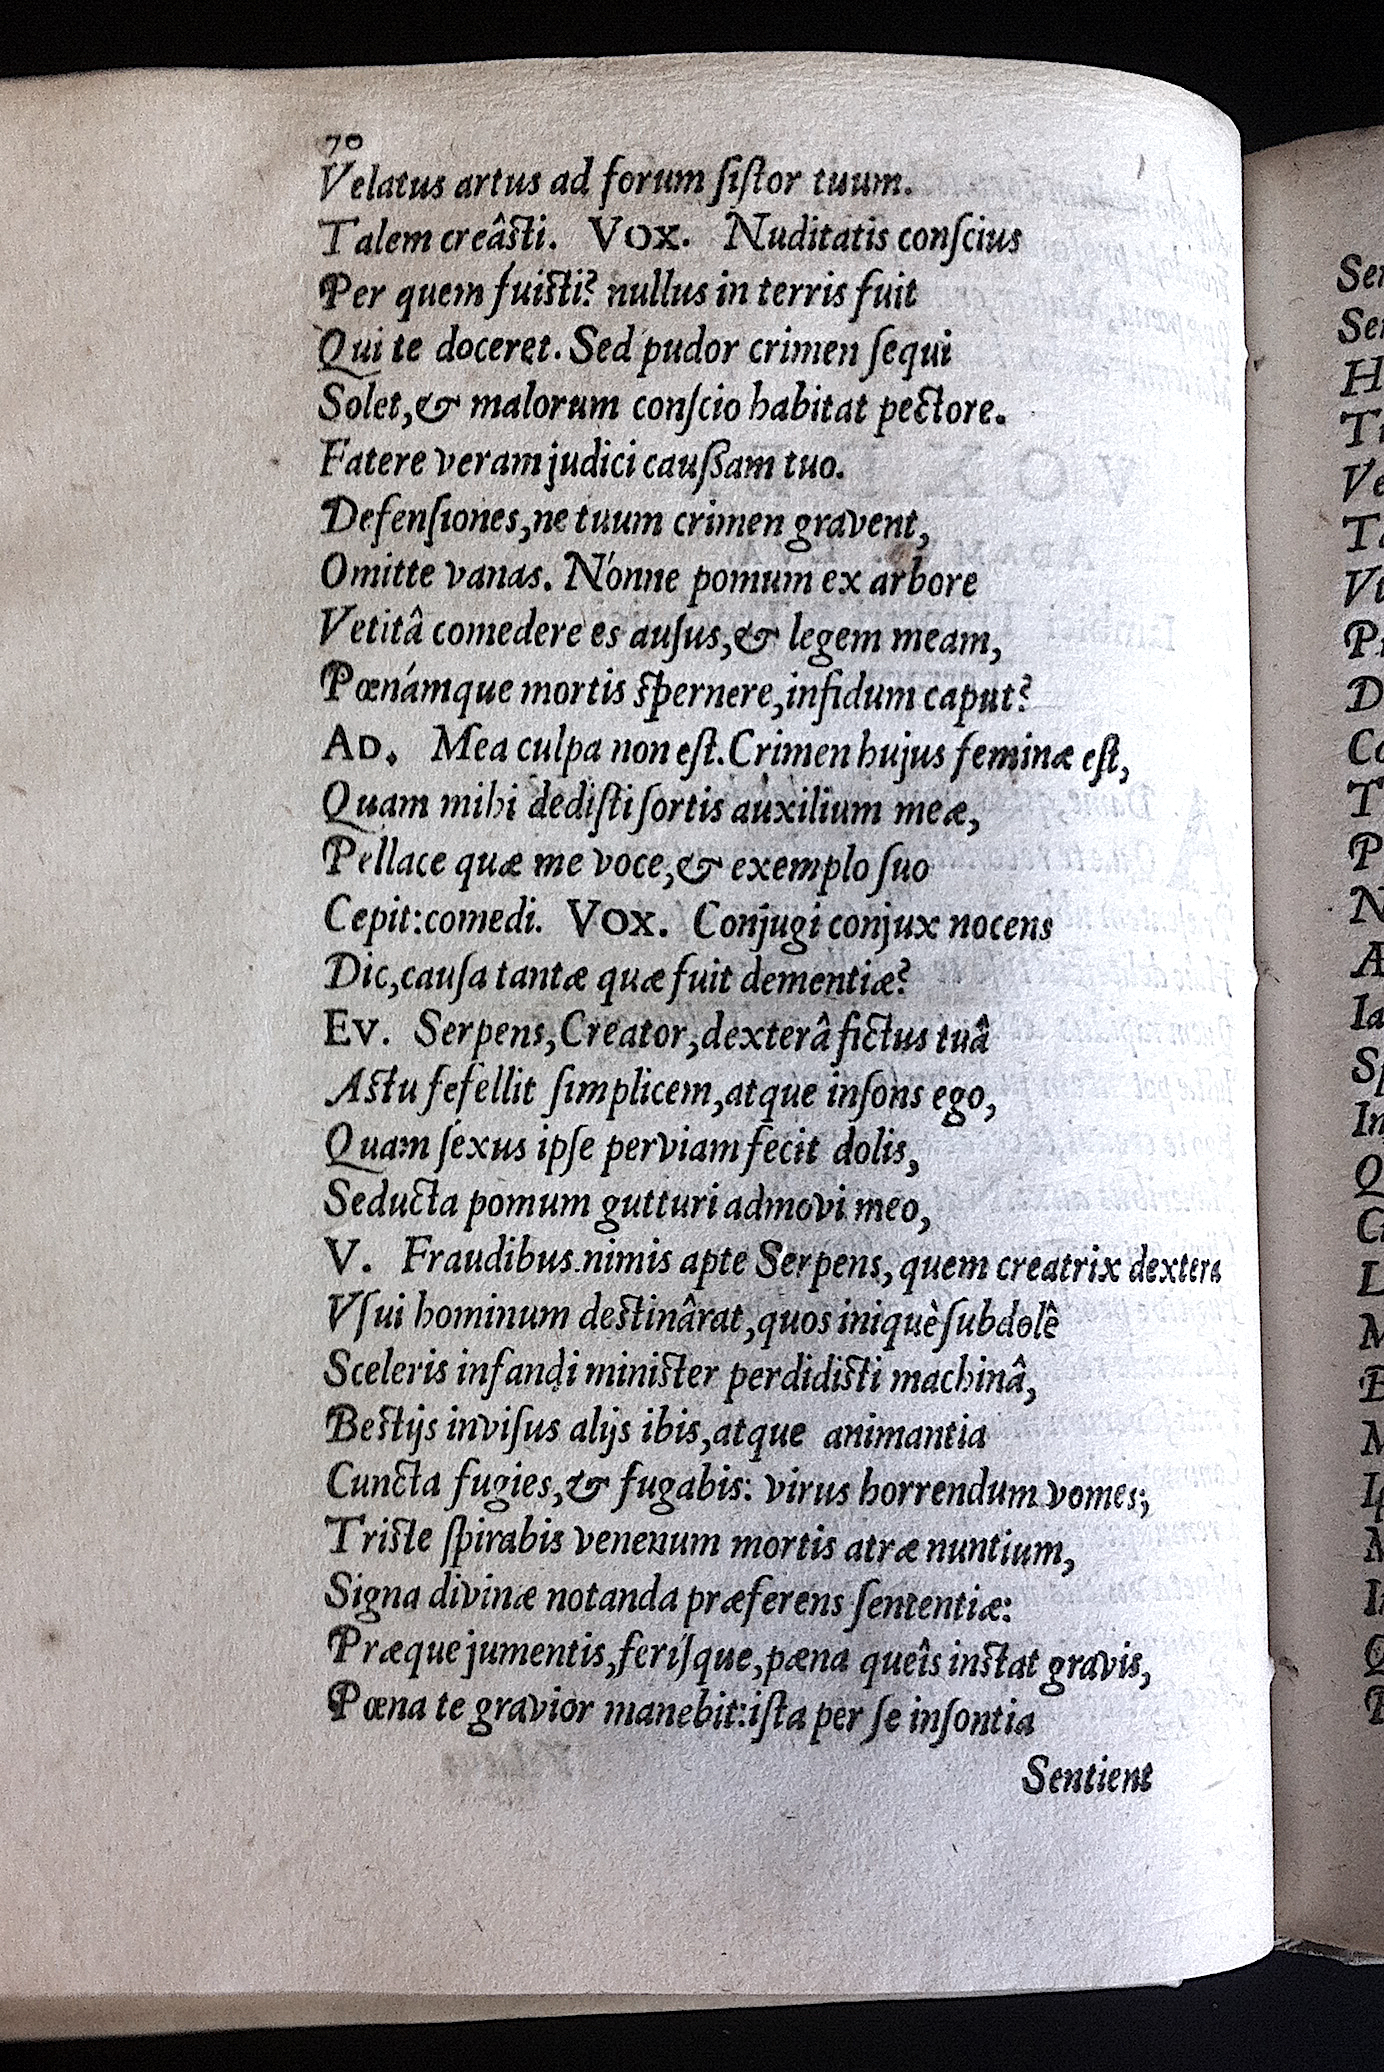 70
Velatus artus ad forum ſiſtor tuum.
Talem creâſti. VOX. Nuditatis conſcius
Per quem fuiſti? nullus in terris fuit
Qui te doceret. Sed pudor crimen ſequi
Solet, & malorum conſcio habitat pectore.
Fatere veram judici cauſſam tuo.
Defenſiones, ne tuum crimen gravent,
Omitte vanas. Nónne pomum ex arbore
Vetitâ comedere es auſus, & legem meam,
Pœnámque mortis ſpernere, infidum caput?
AD. Mea culpa non eſt. Crimen hujus feminæ eſt,
Quam mihi dediſti ſortis auxilium meæ,
Pellace quæ me voce, & exemplo ſuo
Cepit: comedi. VOX. Conjugi conjux nocens
Dic, cauſa tantæ quæ fuit dementiæ?
EV. Serpens, Creator, dexterâ fictus tuâ
Aſtu fefellit ſimplicem, atque inſons ego,
Quam ſexus ipſe perviam fecit dolis,
Seducta pomum gutturi admovi meo,
V. Fraudibus nimis apte Serpens, quem creatrix dextera
Vſui hominum deſtinârat, quos iniquè ſubdolê
Sceleris infandi miniſter perdidiſti machinâ,
Beſtijs inviſus alijs ibis, atque animantia
Cuncta fugies, & fugabis: virus horrendum vomes;
Triſte ſpirabis venenum mortis atræ nuntium,
Signa divinæ notanda præferens ſententiæ:
Præque jumentis, feriſque, pæna queîs inſtat gravis,
Pœna te gravior manebit: iſta per ſe inſontia
Sentient